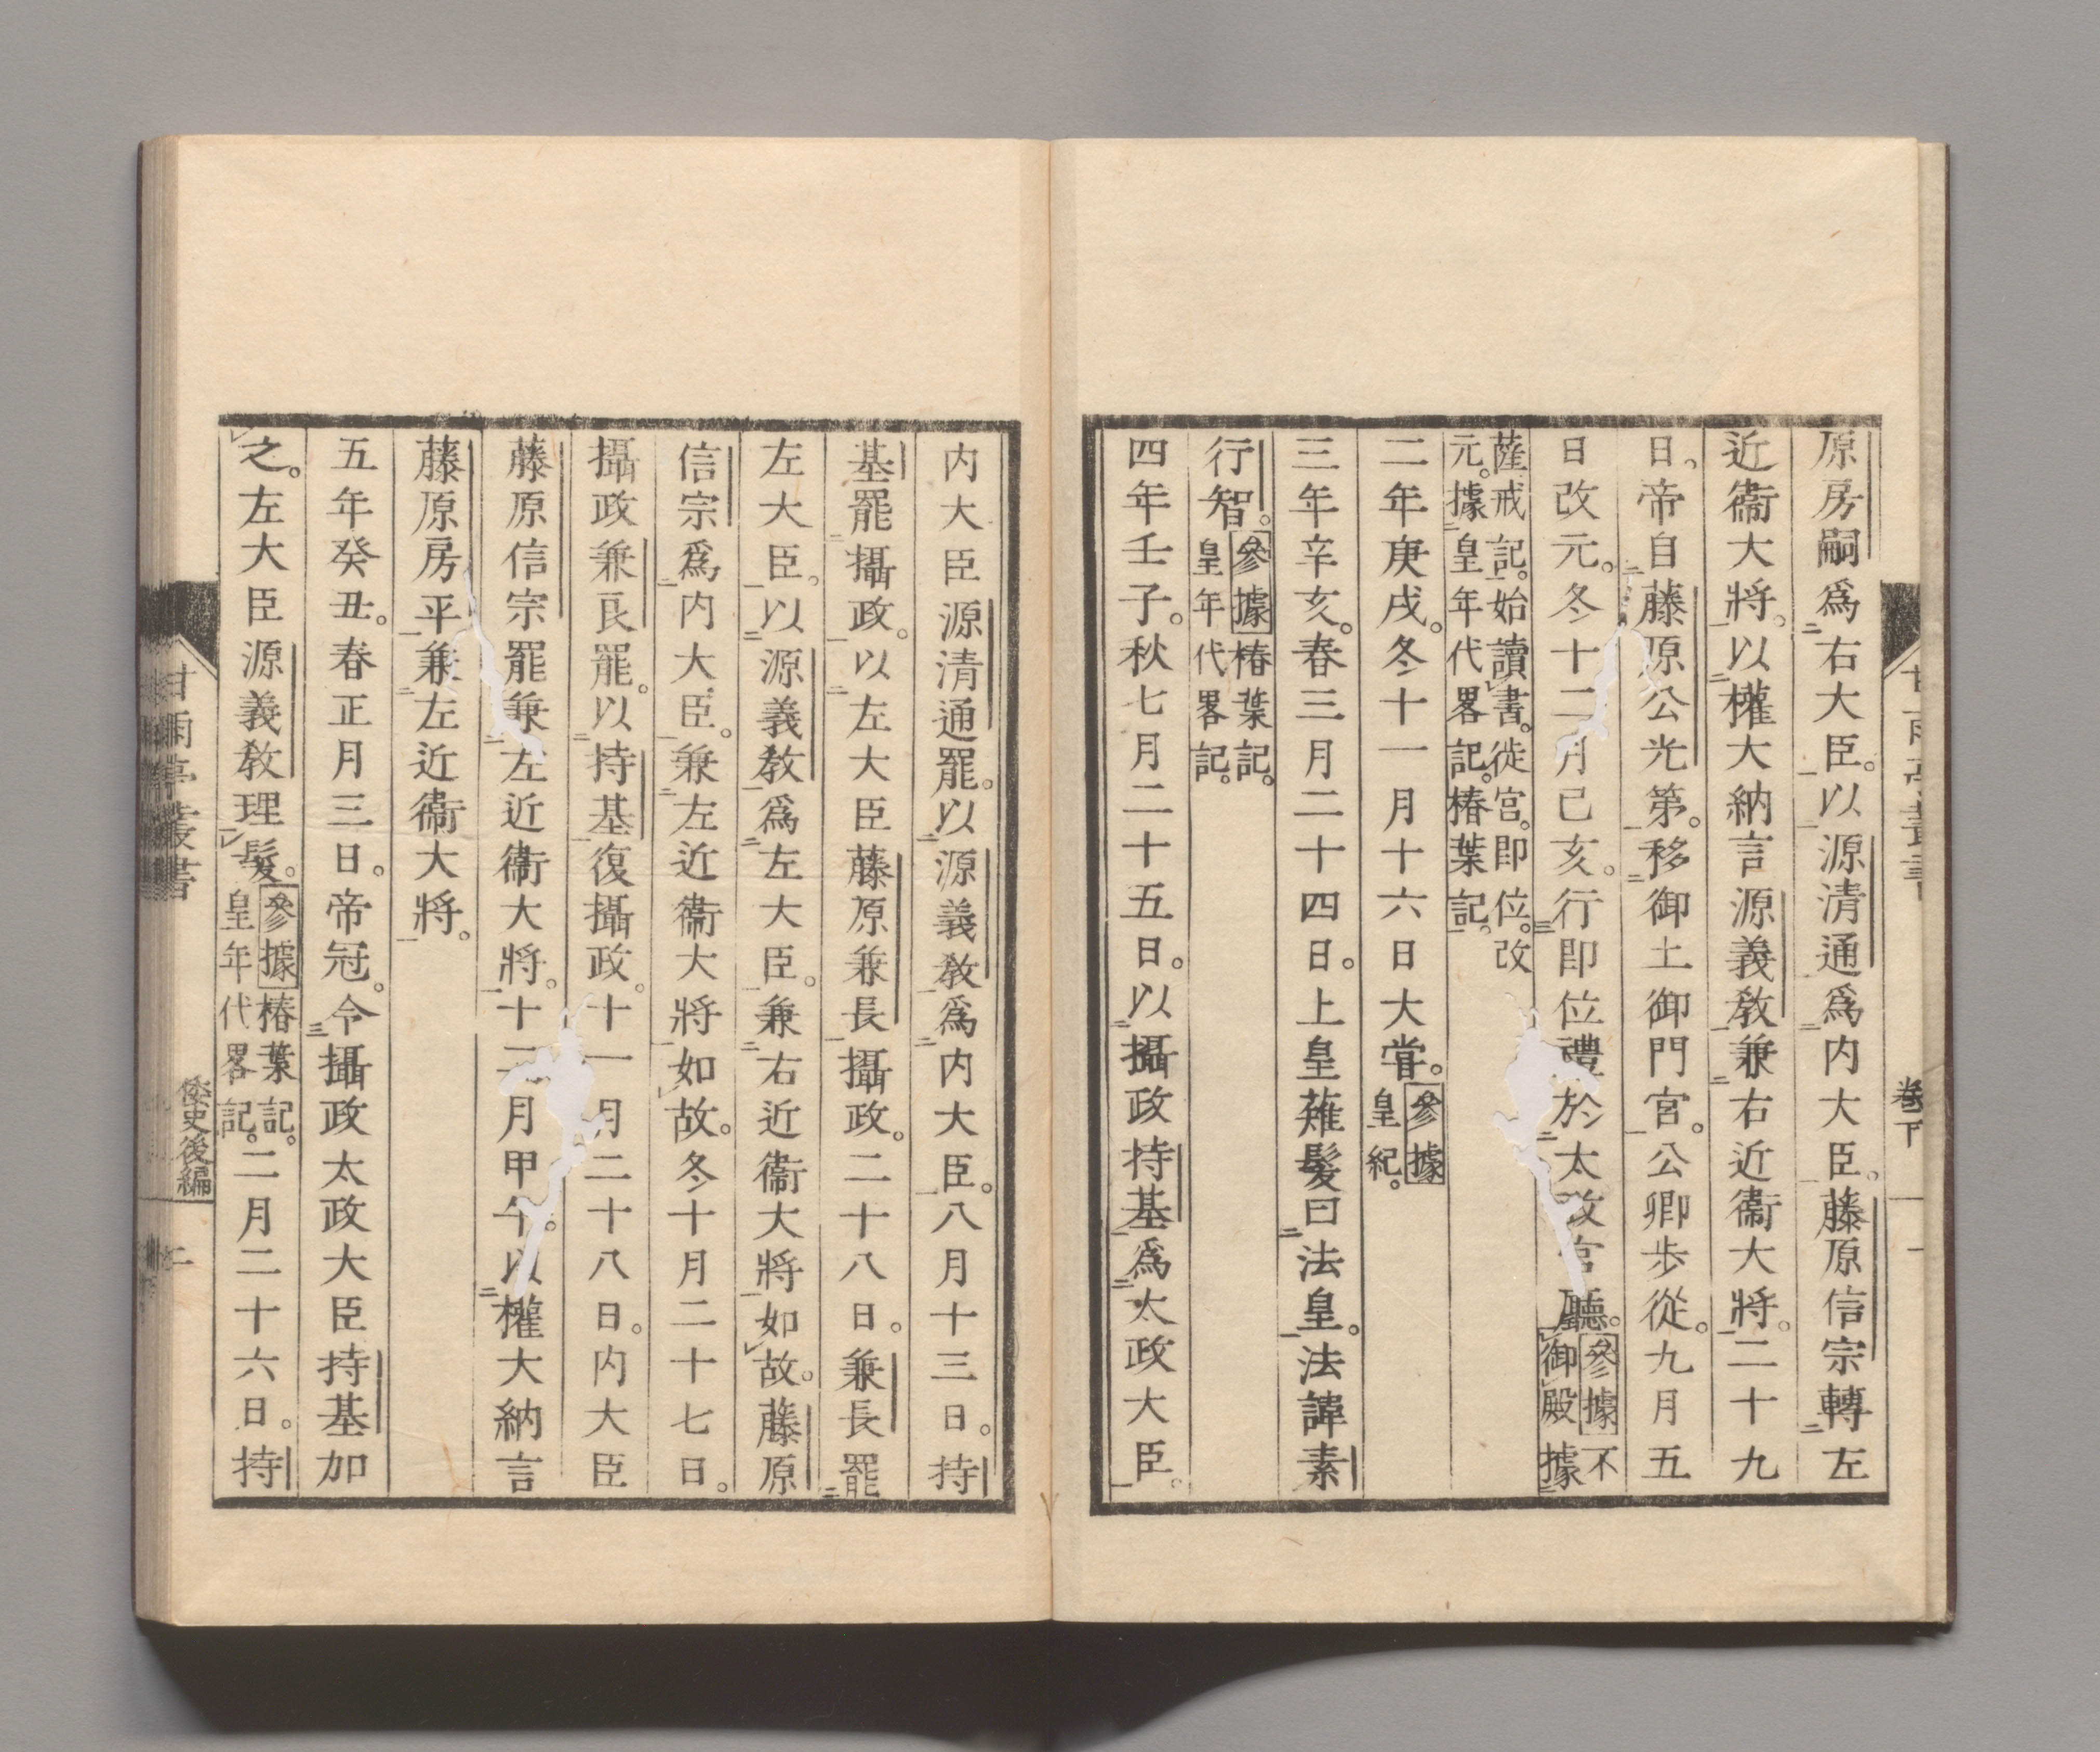 原房嗣爲右大臣。以源清通爲内大臣。藤原信宗轉左
近衞大將。以權大納言源義教兼右近衞大將。二十九
日。帝自藤原公光第。移御土御門宮。公卿歩從。九月五
日改元。冬十二月己亥。行即位禮於太政官廳。參據不
御殿據
薩戒記。始讀書。徙宮。即位。改
元。據皇年代畧記。椿葉記。
二年庚戌。冬十一月十六日大甞。參據
皇紀。
三年辛亥。春三月二十四日。上皇薙髮曰法皇。法諱素
行智。參據椿葉記。
皇年代畧記。
四年壬子。秋七月二十五日。以攝政持基爲太政大臣。
内大臣源清通罷。以源義教爲内大臣。八月十三日。持
基罷攝政。以左大臣藤原兼長攝政。二十八日。兼長罷
左大臣。以源義教爲左大臣。兼右近衞大將如故。藤原
信宗爲内大臣。兼左近衞大將如故。冬十月二十七日。
攝政兼良罷。以持基復攝政。十一月二十八日。内大臣
藤原信宗罷兼左近衞大將。十二月甲午。以權大納言
藤原房平兼左近衞大將。
五年癸丑。春正月三日。帝冠。令攝政太政大臣持基加
之。左大臣源義教理髮。參據椿葉記。
皇年代畧記。二月二十六日。持
甘雨亭叢書
倭史後編
二
卷下